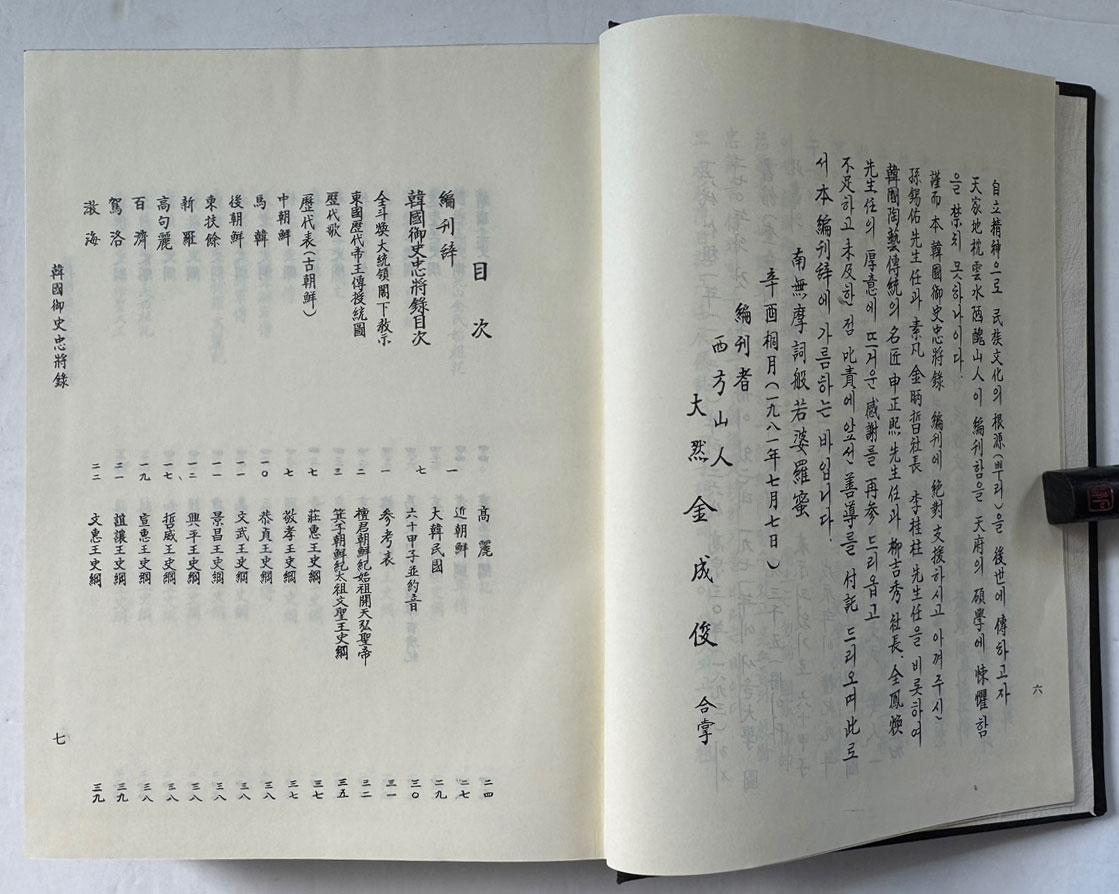 自立精神으로 民族文化의 根源(뿌리)을 後世에 傳하고자
天家地枕雲水 醜山人이 編刊함을 天府의 碩學에 悚懼함
을 禁치 못하나이다.
謹而 本 韓國御史忠將錄 編刊에 絶對支援하시고 아껴주신
孫錫佑先生任과 素凡 金昞哲社長 李桂柱 先生任을 비롯하여
韓國陶藝傳統의 名匠 申正熙先生任과 柳吉秀 社長, 全鳳煥
先生任의 厚意에 뜨거운 感謝를 再參 드리옵고
不足하고 未及한 점 叱責에 앞선 善導를 付託 드리오며 此로
서 本編刊辭에 가름하는 바입니다.
南無摩訶般若婆羅蜜
辛酉桐月(一九八一年七月七日)
編刊者
西方山人
大然 金成俊 合掌
六
目次
編刊辭 一
韓國御史忠將錄目次 七
全斗煥大統領閣下敎示 一
東國歷代帝王傳授統圖 二
歷代歌 三
歷代表(古朝鮮) 七
中朝鮮 七
馬韓 一〇
後朝鮮 一一
東扶餘 一一
新羅 一二
高句麗 一七
百濟 一九
駕洛 二一
渤海 二二
高麗 二四
近朝鮮 二七
大韓民國 二九
六十甲子並約音 三〇
參考表 三一
檀君朝鮮紀始祖開天弘聖帝 三二
箕子朝鮮紀太祖文聖王史綱 三五
莊惠王史綱 三七
敬孝王史綱 三七
恭貞王史綱 三八
文武王史綱 三八
景昌王史綱 三八
興平王史綱 三八
哲威王史綱 三八
宣惠王史綱 三八
誼讓王史綱 三九
文惠王史綱 三九
韓國御史忠將錄
七